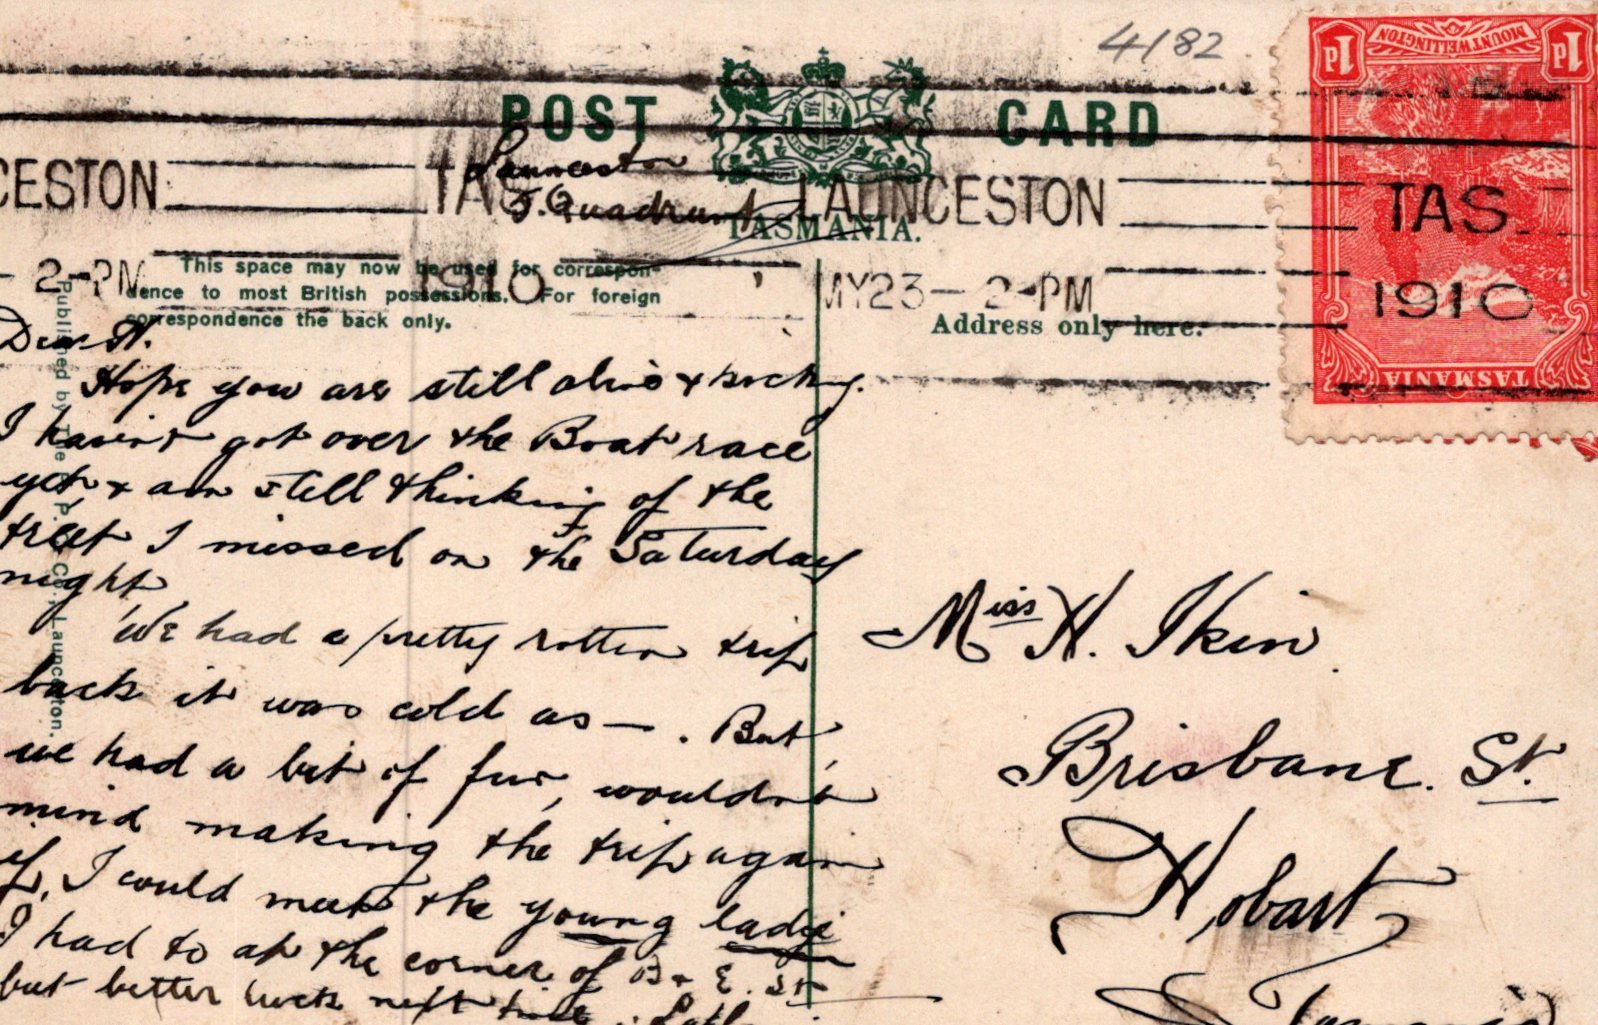 4182
POST CARD
CESTON TAS. LAUNCESTON TAS.
Launceston
J. Quadrant
TASMANIA.
- 2-PM 1910 MY23-2-PM 1910
This space may now be used for correspon-
dence to most British possessions. For foreign
correspondence the back only.
Address only here.
1d MOUNT WELLINGTON 1d
TASMANIA
Published by The P. Co., Launceston.
Dear H.
Hope you are still alive & kicking.
I havin't got over the Boat race
yet, & am still thinking of the
treat I missed on the Saturday
night
We had a pretty rotten trip
back it was cold as — . But
we had a bit of fur, wouldn't
mind making the trip again
if, I could meet the young lady
I had to at the corner of B & E. St
but better luck next time.
Miss H. Ikin
Brisbane. St.
Hobart
Tasmania